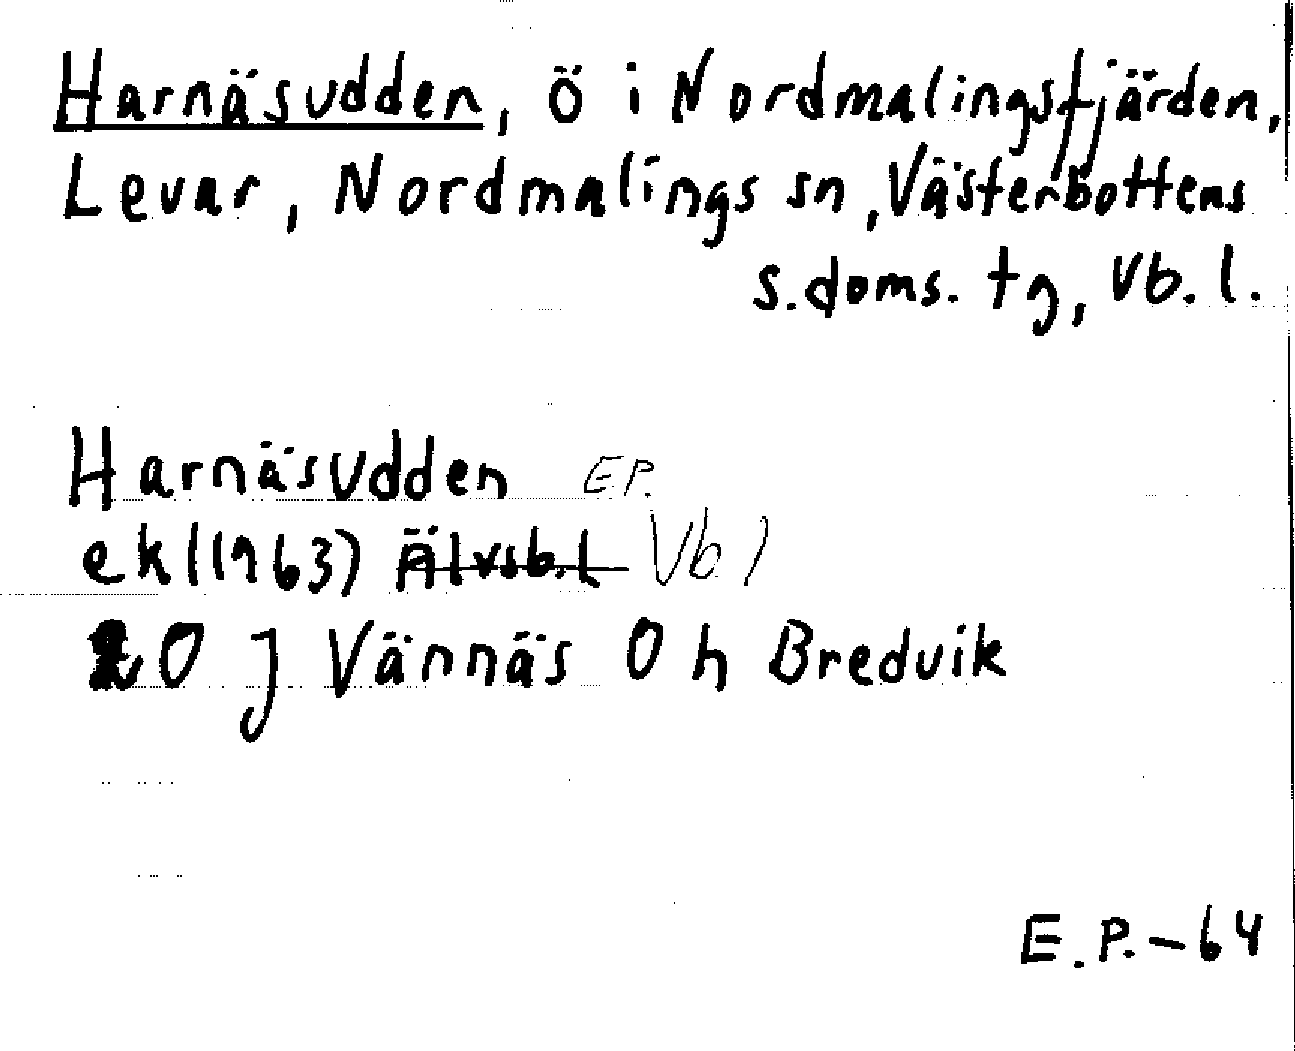 Harnäsudden, ö i Nordmalingsfjärden,
Levar, Nordmalings sn, Västerbottens
s. doms. tg, Vb. l.
Harnäsudden E P.
ek (1963) Älvsb. l Vb l
20 J Vännäs 0 h Bredvik
E. P. - 64